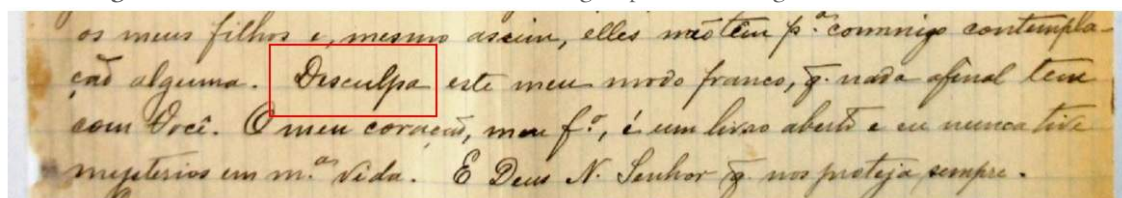 os meus filhos e, mesmo assim, elles não têm p.ª commigo contempla-
ção alguma. Desculpa este meu modo franco, q. nada afinal tem
com Você. O meu coração, meu f.º, é um livro aberto e eu nunca tive
mysterios em m.ª vida. E Deus N. Senhor q. nos proteja sempre.